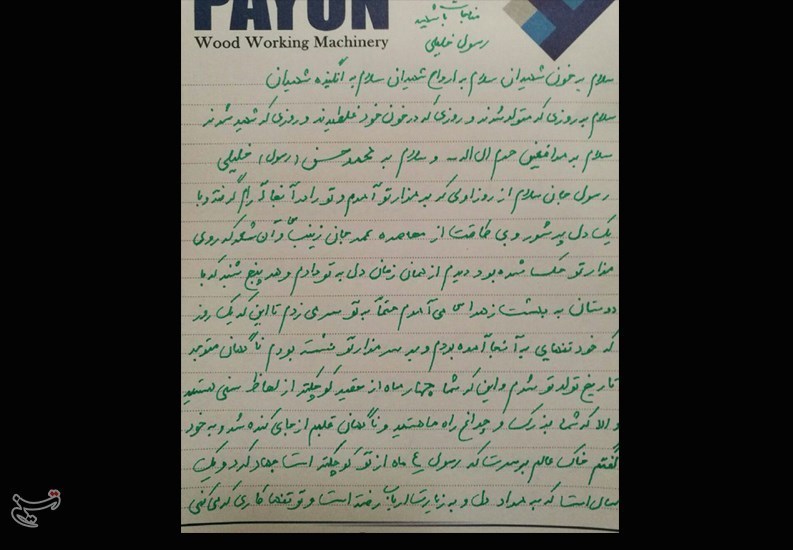 PAYUN
Wood Working Machinery
باشید
رسول خلیلی
سلام به خون شهیدان سلام به ارواح شهیدان سلام به انگیزه شهیدان
سلام به روزی که متولد شدند و روزی که در خون خود غلطیدند و روزی که شهید شدند
سلام به مدافعین حرم ال الله و سلام به محمد حسن (رسول) خلیلی
رسول جان سلام از روز اولی که به مزار تو آمدم و تو را در آنجا آرام گرفته و با
یک دل پر شور و بی طاقت از محاصره عمه جانی زینب و آن شعر که روی
مزار تو حک شده بود دیدم از همان زمان دل به تو دادم و هر پنج شنبه که با
دوستان به بهشت زهرا س می آمدم حتما به تو سر می زدم تا این که یک روز
که خود تنهایی به آنجا آمده بودم و بر سر مزار تو نشسته بودم ناگهان متوجه
تاریخ تولد تو شدم و این که شما چهار ماه از حقیر کوچکتر از لحاظ سنی هستید
و الا که شما بزرگ و چراغ راه ما هستید و ناگهان قلبم از جای کنده شد و به خود
گفتم خاک عالم بر سرت که رسول ۴ ماه از تو کوچکتر است جهاد کرد و یک
سال است که به مراد دل و به زیارت ارباب رفته است و تو تنها کاری که می کنی
تسنیم